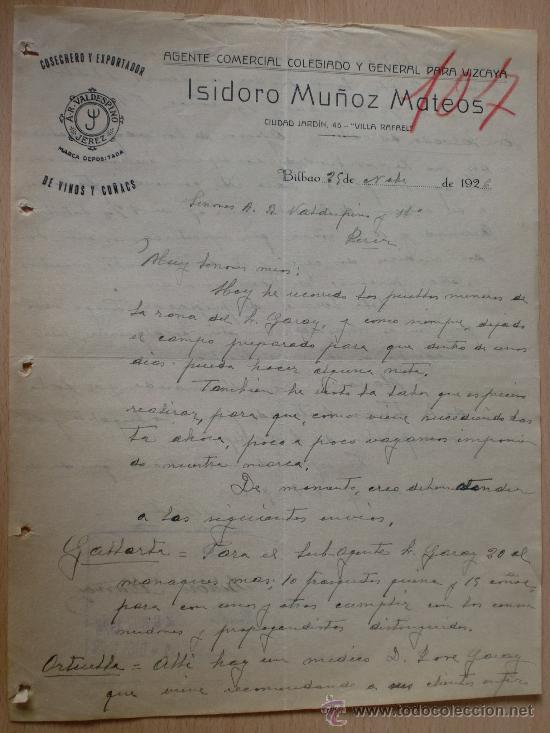 COSECHERO Y EXPORTADOR
A.R. VALDESPINO
JEREZ
MARCA DEPOSITADA
DE VINOS Y COÑACS
AGENTE COMERCIAL COLEGIADO Y GENERAL PARA VIZCAYA
107
Isidoro Muñoz Mateos
CIUDAD JARDÍN, 45 - "VILLA RAFAEL"
Bilbao 25 de de 192
Señores A. R. Valdespino y Hº
Jerez
Muy Señores mios:
Hoy he recorrido los pueblos mineros de
la zona del Sr. Garay, y como siempre, dejado
el campo preparado para que dentro de unos
dias pueda hacer alguna nota.
Tambien he la labor que es preciso
realizar, para que, como viene sucediendo has
ta ahora, poco a poco vayamos imponien
do nuestra marca.
De momento, creo deben atender
a los siguientes envios.
Gallarta = Para el Sub-agente Sr. Garay 20 al
manaques mas, 10 frasquitos quina y 15 coñac,
para con unos y otros cumplir con los consu
midores y propagandistas distinguidos.
Ortuella = Alli hay un medico D. Jose Garay
que viene recomendando a sus clientes enfer
todocoleccion.net